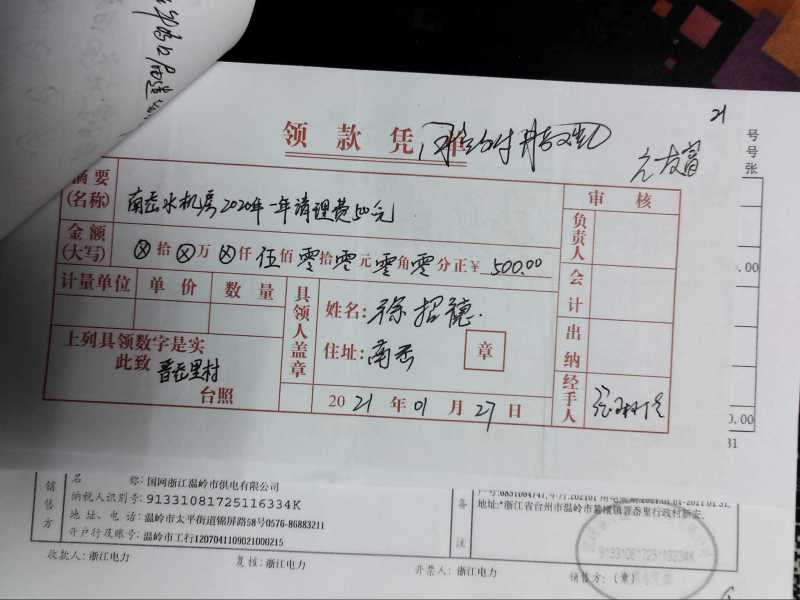 21
领款凭单
号
号
张
摘要
(名称)
南岙水机房2020年一年清理费500元
审核
金额
(大写)
⊗拾⊗万⊗仟伍佰零拾零元零角零分正￥500.00
负责人
计量单位 单价 数量
具领人盖章
姓名:徐招德.
会计
住址:南岙
章
出纳
上列具领数字是实
此致 晋岙里村
台照
2021年01月27日
经手人
.00
0.00
31
销售方
名 称:国网浙江温岭市供电有限公司
纳税人识别号:91331081725116334K
地址、电话:温岭市太平街道锦屏路58号0576-86883211
开户行及账号:温岭市工行1207041109021000215
备注
地址:*浙江省台州市温岭市箬横镇晋岙里行政村新宏
91331081725116334K
收款人:浙江电力
复核:浙江电力
开票人:浙江电力
销售方:(章)